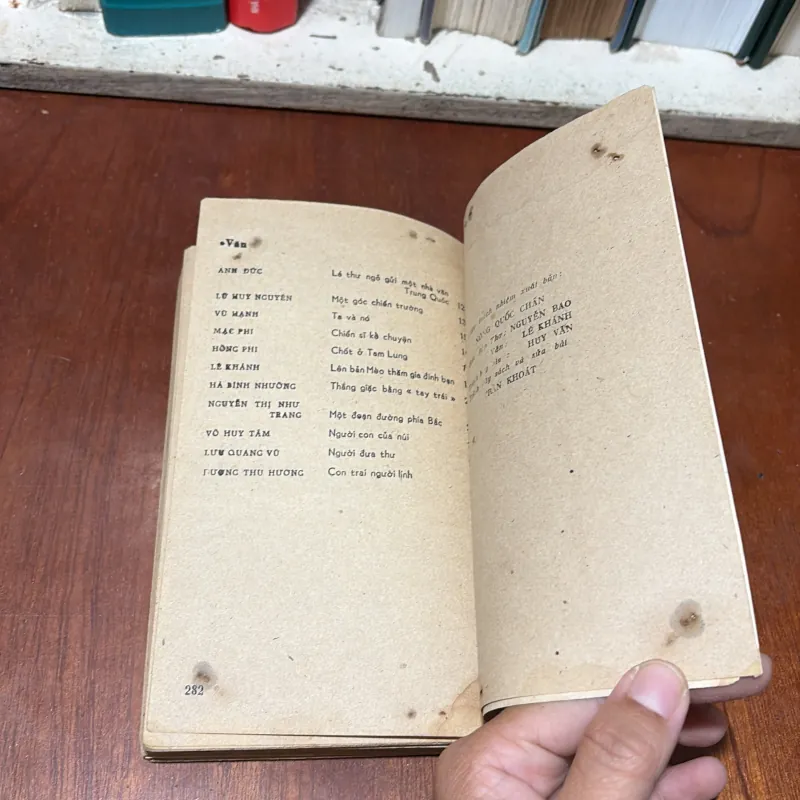 Văn
ANH ĐỨC Lá thư ngỏ gửi một nhà văn
Trung Quốc
LỮ HUY NGUYÊN Một góc chiến trường
VŨ HẠNH Ta và nó
MẠC PHI Chiến sĩ kể chuyện
HỒNG PHI Chốt ở Tam Lung
LÊ KHÁNH Lên bản Mèo thăm gia đình bạn
HÀ BÌNH NHƯỠNG Thắng giặc bằng « tay trái »
NGUYỄN THỊ NHƯ
TRANG Một đoạn đường phía Bắc
VÕ HUY TÂM Người con của núi
LƯU QUANG VŨ Người đưa thư
DƯƠNG THU HƯƠNG Con trai người lính
282
nhiệm xuất bản:
NÔNG QUỐC CHẤN
Thơ: NGUYỄN BAO
Văn: LÊ KHÁNH
HUY VĂN
sách và sửa bài
TÂN KHOÁT